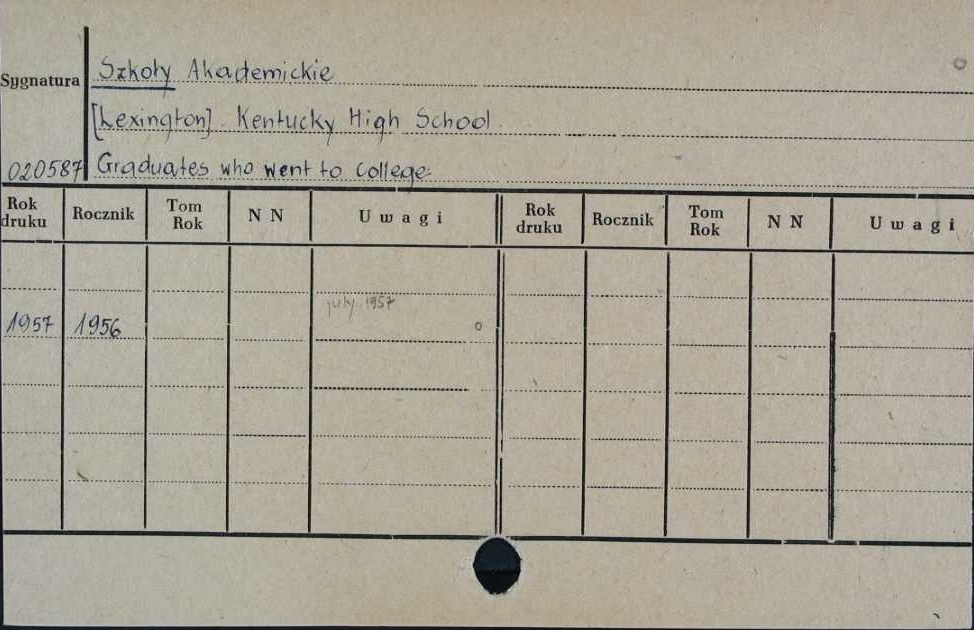 Sygnatura Szkoły Akademickie
[Lexington]. Kentucky High School
020587 Graduates who went to college.
Rok druku Rocznik Tom Rok N N Uwagi Rok druku Rocznik Tom Rok N N Uwagi
july 1957
1957 1956